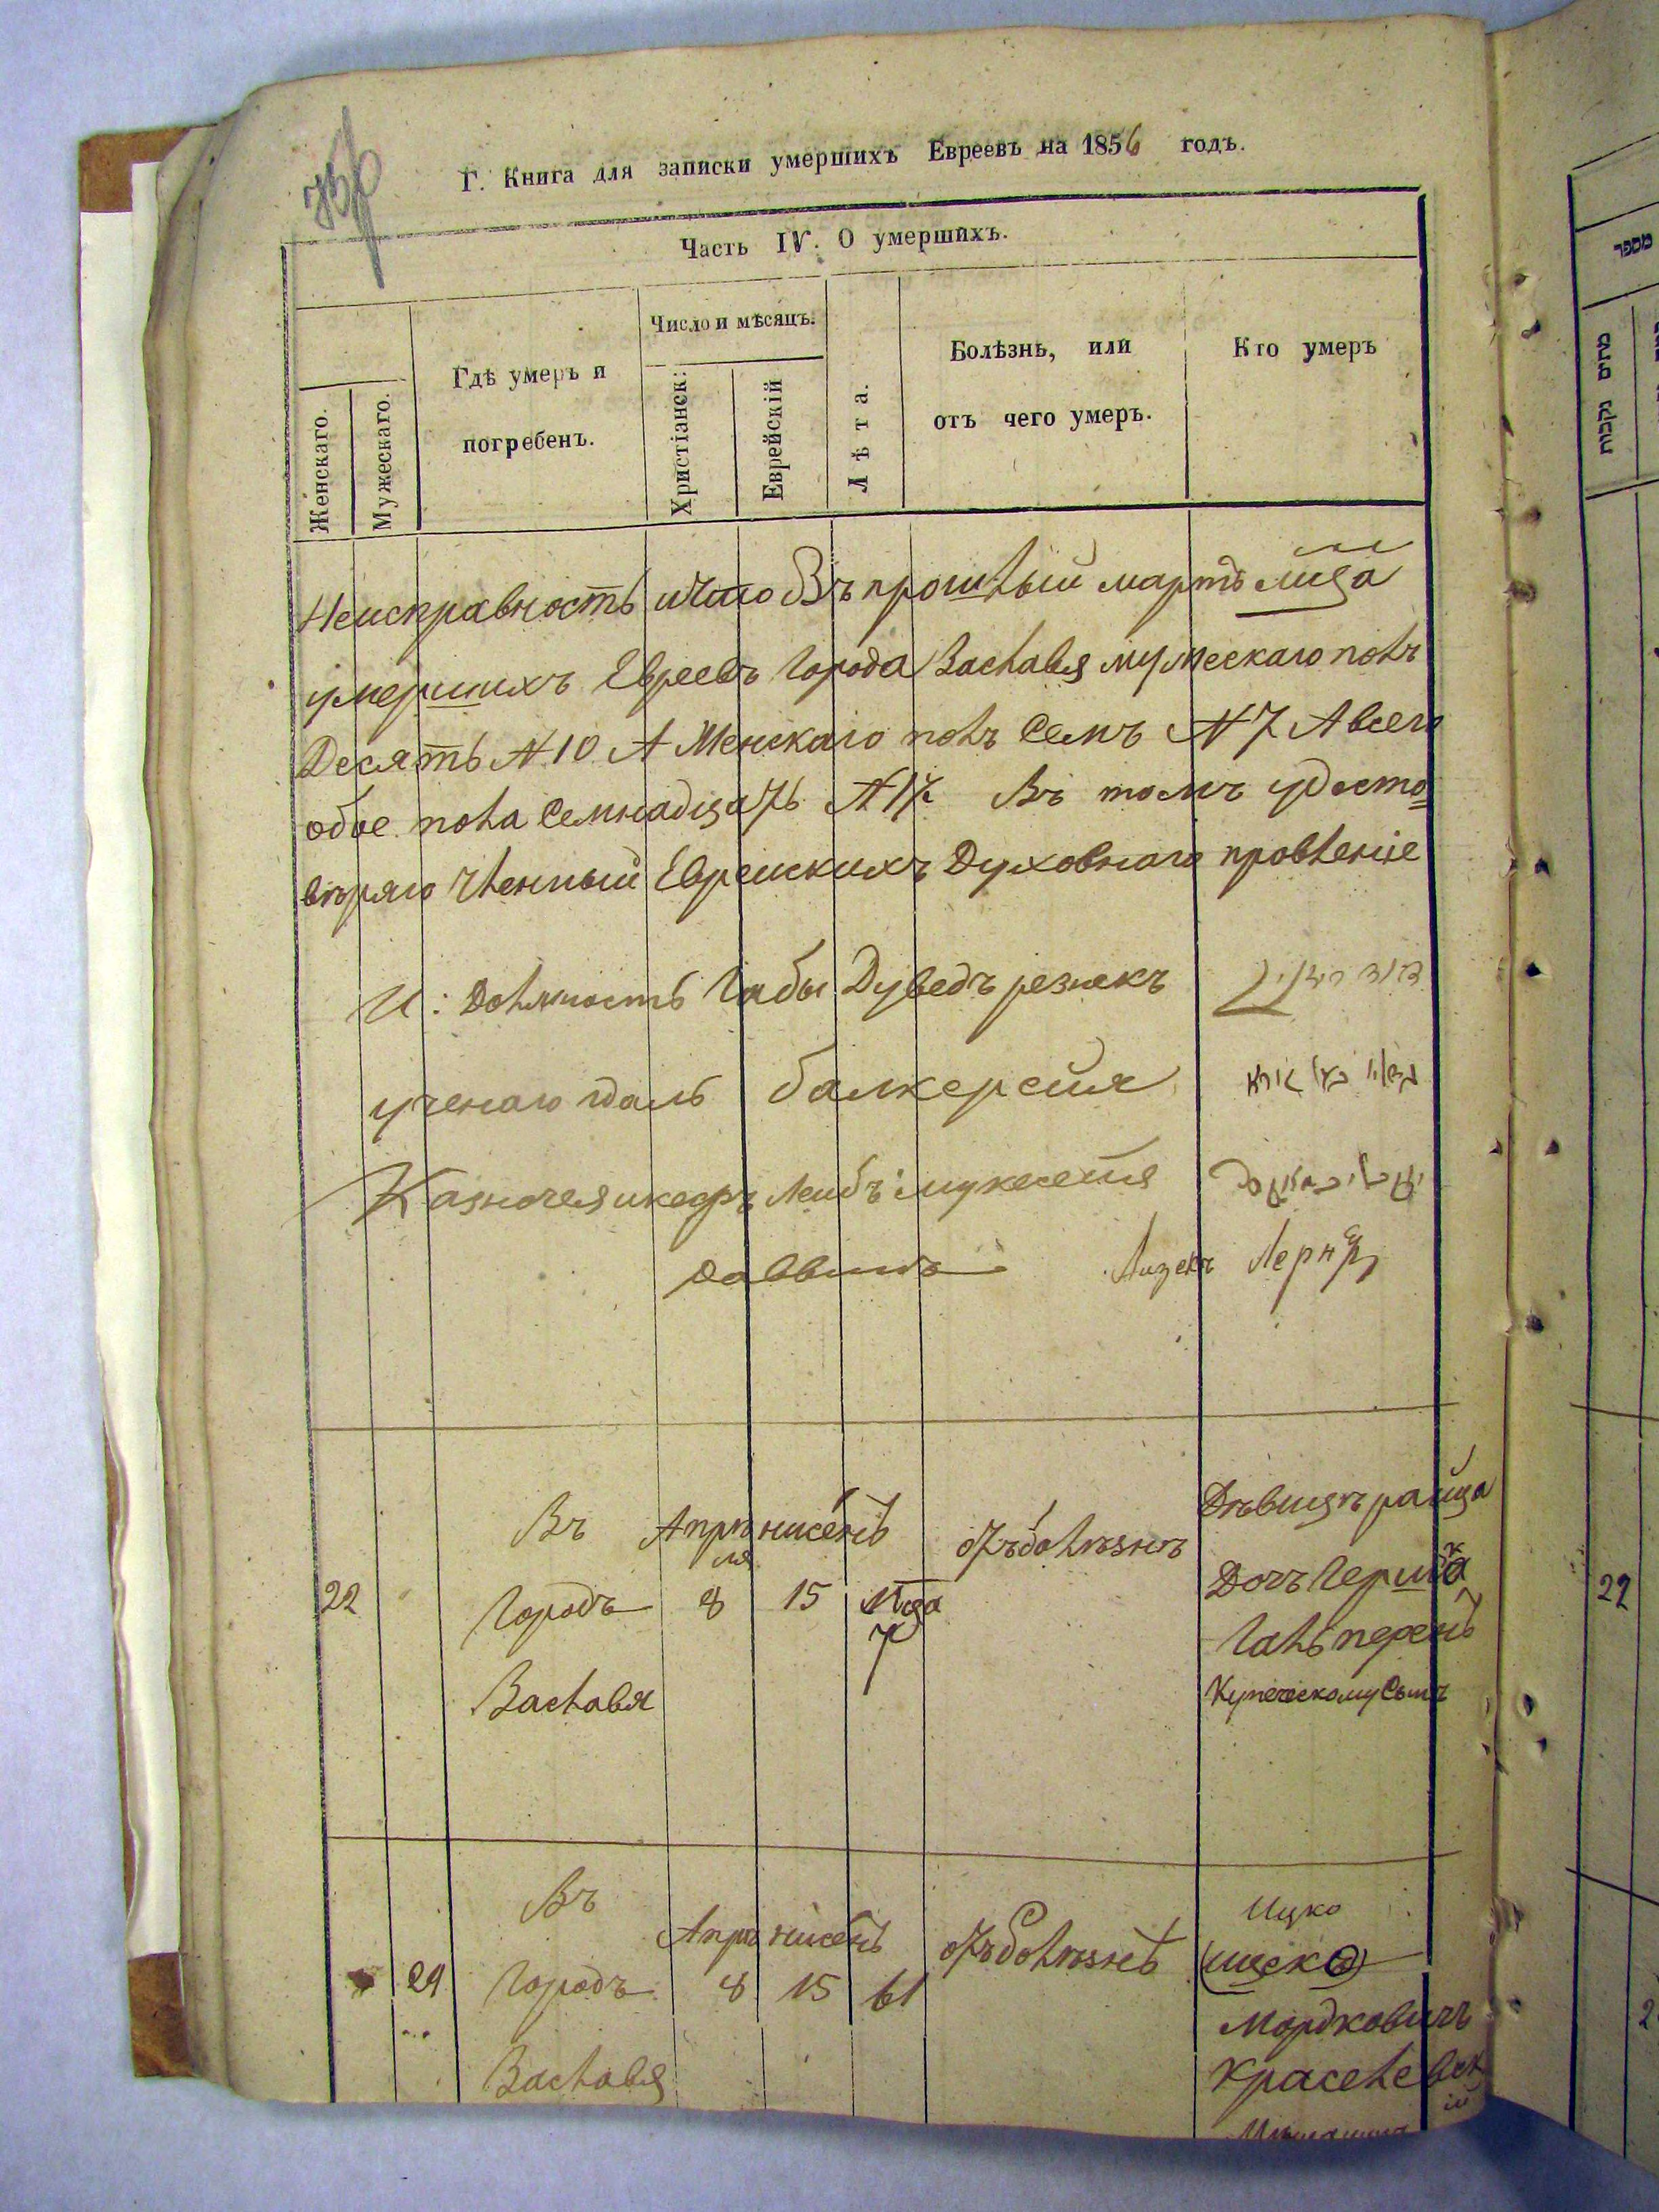 Г. Книга для записки умершихъ Евреевъ на 1856 годъ.
Часть IV. О умершихъ.
Женскаго.
Мужескаго.
Гдѣ умеръ и
погребенъ.
Число и мѣсяцъ.
Христіанск:
Еврейскій
Лѣта.
Болѣзнь, или
отъ чего умеръ.
Кто умеръ
Неисправность что Въ прошлый мартъ мца
умершихъ Евреевъ Города Заславя мужескаго полъ
Десять N 10 А Женскаго полъ Семъ N 7 А всего
обое пола Семнадцать N 17 Въ томъ удосто
вѣряю Членный Евреискихъ Духовнаго провленіе
И: Должность Габы Дуведъ резнекъ
ученаго
Лейбъ
Лернер
22
Въ
Городъ
Заславя
Апрѣ
ля
8
нисень
15
Мца
7
отъ болѣзнъ
Дѣвицъ раица
Дочъ Гершка
Гальперенъ
Купеческому Сынъ
29
Въ
Городъ
Заславя
Апрѣ
8
нисень
15
61
отъ болѣзнь
Ицко
(ицско)
Мордковичъ
Краселевск
ій
מספר
נקבות
זכרים
22